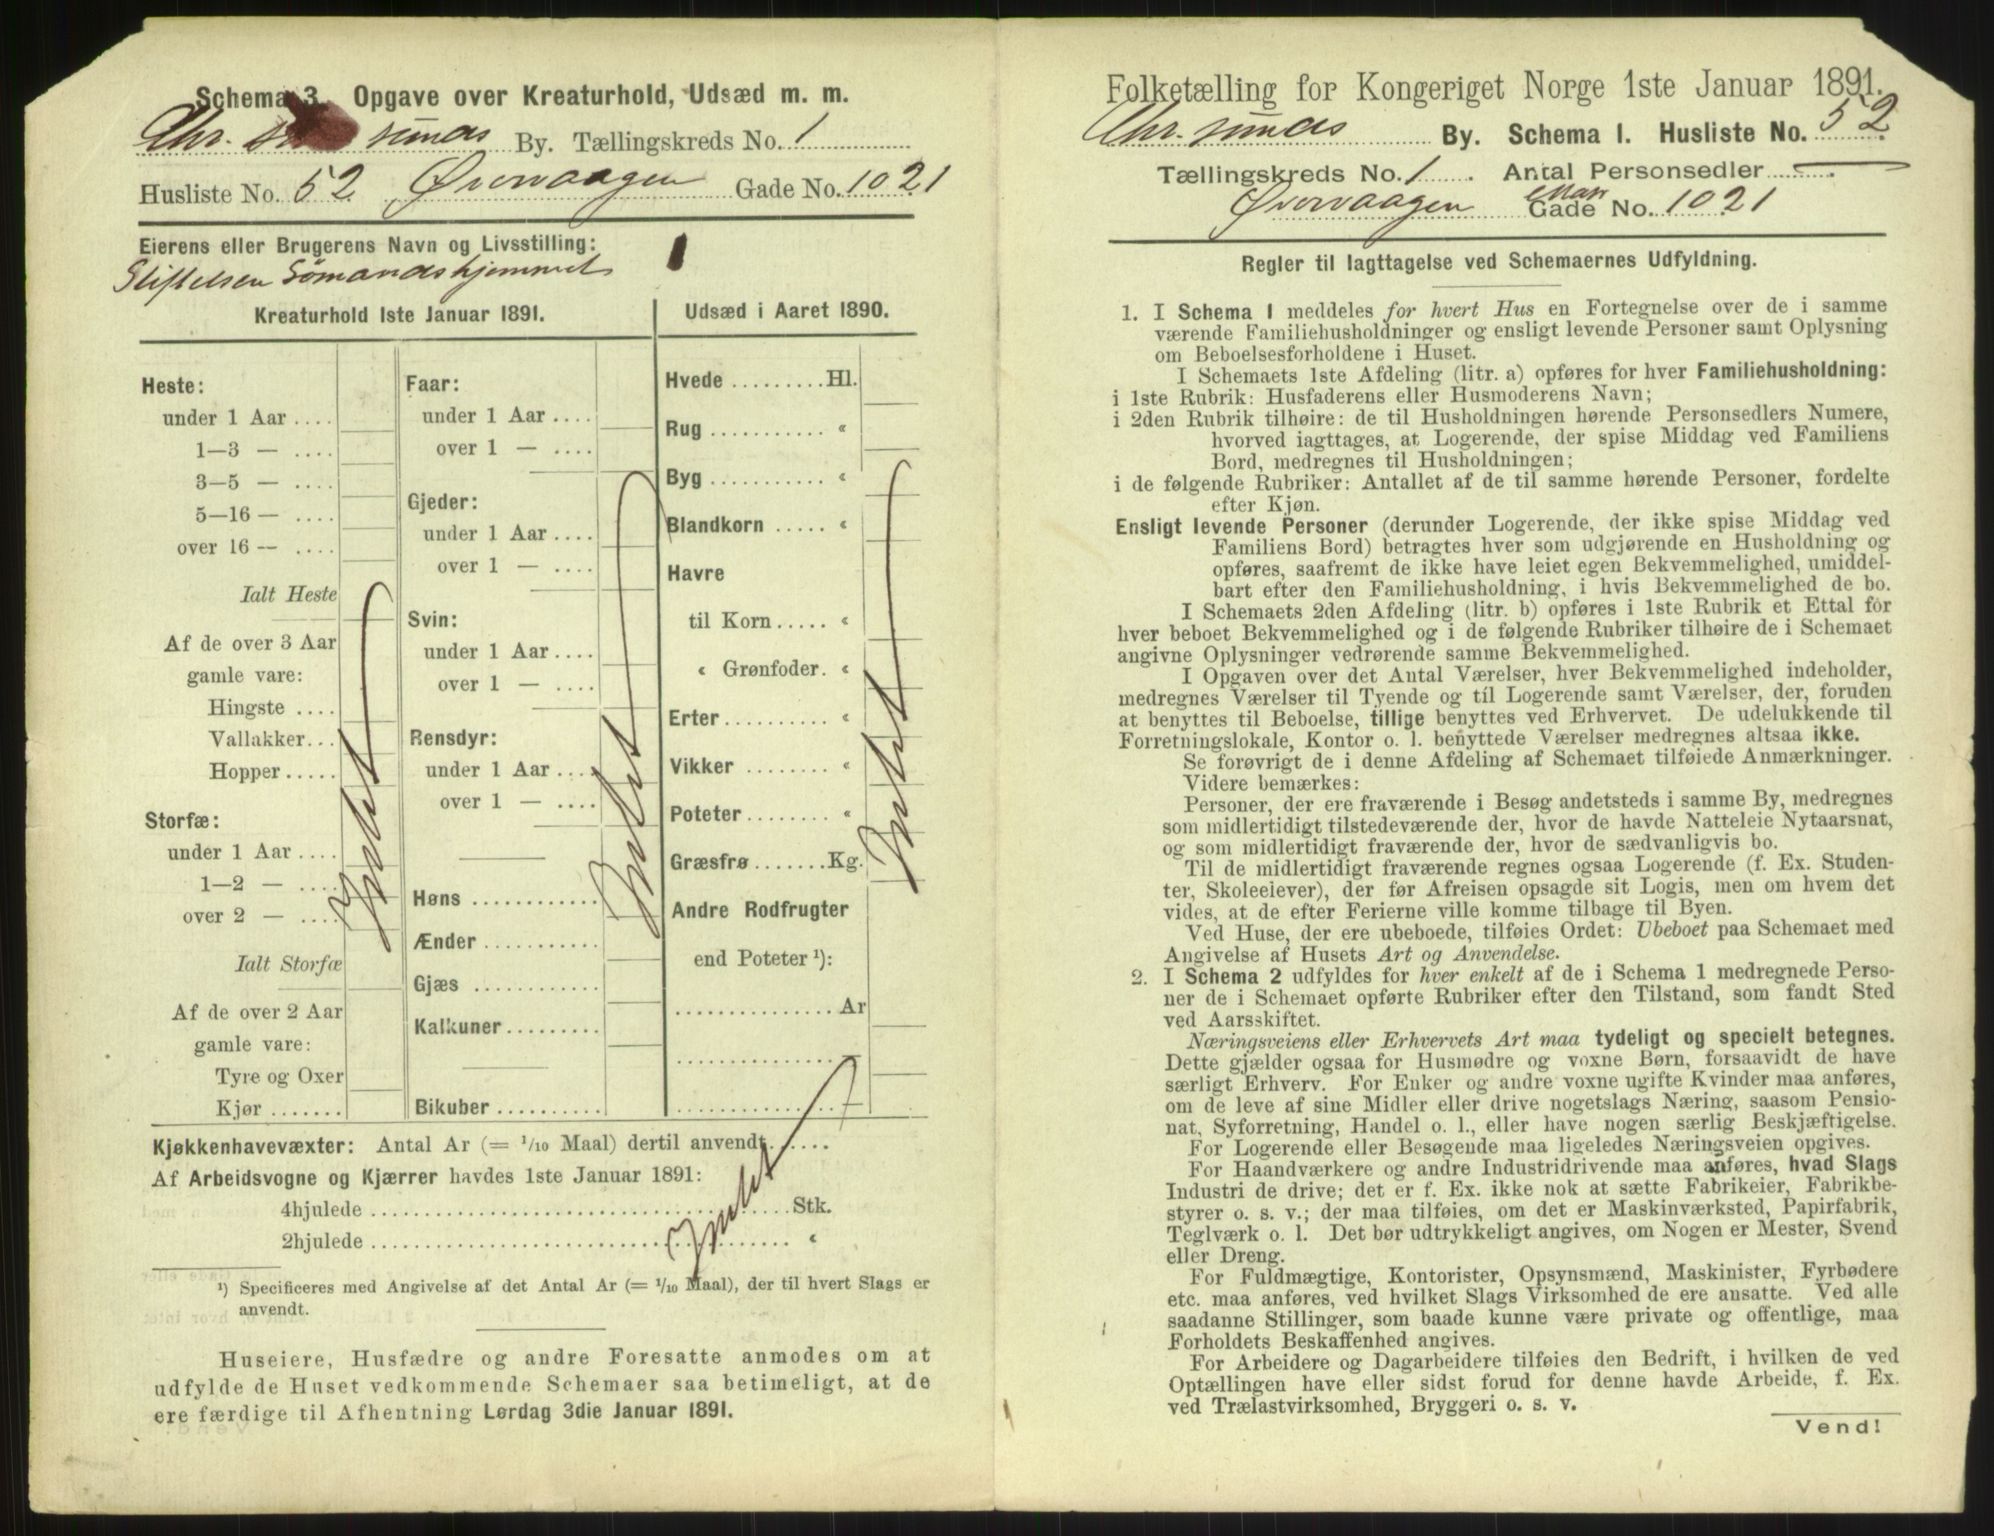 Schema 3. Opgave over Kreaturhold, Udsæd m. m.
Chr. sunds By. Tællingskreds No. 1
Husliste No. 52 Øvervaagen Gade No. 1021
Eierens eller Brugerens Navn og Livsstilling:
Stiftelsen Sömandshjemmet
Kreaturhold 1ste Januar 1891.
Heste:
under 1 Aar ....
1—3 — ....
3—5 — ....
5—16 — ....
over 16 — ....
Ialt Heste
Af de over 3 Aar
gamle vare:
Hingste ....
Vallakker...
Hopper.....
Storfæ:
under 1 Aar ....
1—2 — ....
over 2 — ....
Ialt Storfæ
Af de over 2 Aar
gamle vare:
Tyre og Oxer
Kjør .......
Intet
Faar:
under 1 Aar ....
over 1 — ....
Gjeder:
under 1 Aar ....
over 1 — ....
Svin:
under 1 Aar ....
over 1 — ....
Rensdyr:
under 1 Aar ....
over 1 — ....
Høns ............
Ænder ...........
Gjæs ............
Kalkuner.........
Bikuber ..........
Intet
Udsæd i Aaret 1890.
Hvede .........Hl.
Rug ........... «
Byg ........... «
Blandkorn ..... «
Havre
til Korn..... «
« Grønfoder. «
Erter.......... «
Vikker ........ «
Poteter........ «
Græsfrø.......Kg.
Andre Rodfrugter
end Poteter ¹):
...............Ar
Intet
Kjøkkenhavevæxter: Antal Ar (= 1/10 Maal) dertil anvendt......
Af Arbeidsvogne og Kjærrer havdes 1ste Januar 1891:
4hjulede ........................................Stk.
2hjulede ........................................ «
Intet
¹) Specificeres med Angivelse af det Antal Ar (= 1/10 Maal), der til hvert Slags er
anvendt.
Huseiere, Husfædre og andre Foresatte anmodes om at
udfylde de Huset vedkommende Schemaer saa betimeligt, at de
ere færdige til Afhentning Lørdag 3die Januar 1891.
Folketælling for Kongeriget Norge 1ste Januar 1891.
Chr. sunds By. Schema 1. Husliste No. 52
Tællingskreds No. 1 Antal Personsedler —
Øvervaagen Gade No. 1021
Regler til Iagttagelse ved Schemaernes Udfyldning.
1. I Schema 1 meddeles for hvert Hus en Fortegnelse over de i samme
værende Familiehusholdninger og ensligt levende Personer samt Oplysning
om Beboelsesforholdene i Huset.
I Schemaets 1ste Afdeling (litr. a) opføres for hver Familiehusholdning:
i 1ste Rubrik: Husfaderens eller Husmoderens Navn;
i 2den Rubrik tilhøire: de til Husholdningen hørende Personsedlers Numere,
hvorved iagttages, at Logerende, der spise Middag ved Familiens
Bord, medregnes til Husholdningen;
i de følgende Rubriker: Antallet af de til samme hørende Personer, fordelte
efter Kjøn.
Ensligt levende Personer (derunder Logerende, der ikke spise Middag ved
Familiens Bord) betragtes hver som udgjørende en Husholdning og
opføres, saafremt de ikke have leiet egen Bekvemmelighed, umiddel-
bart efter den Familiehusholdning, i hvis Bekvemmelighed de bo.
I Schemaets 2den Afdeling (litr. b) opføres i 1ste Rubrik et Ettal for
hver beboet Bekvemmelighed og i de følgende Rubriker tilhøire de i Schemaet
angivne Oplysninger vedrørende samme Bekvemmelighed.
I Opgaven over det Antal Værelser, hver Bekvemmelighed indeholder,
medregnes Værelser til Tyende og til Logerende samt Værelser, der, foruden
at benyttes til Beboelse, tillige benyttes ved Erhvervet. De udelukkende til
Forretningslokale, Kontor o. l. benyttede Værelser medregnes altsaa ikke.
Se forøvrigt de i denne Afdeling af Schemaet tilføiede Anmærkninger.
Videre bemærkes:
Personer, der ere fraværende i Besøg andetsteds i samme By, medregnes
som midlertidigt tilstedeværende der, hvor de havde Natteleie Nytaarsnat,
og som midlertidigt fraværende der, hvor de sædvanligvis bo.
Til de midlertidigt fraværende regnes ogsaa Logerende (f. Ex. Studen-
ter, Skoleeiever), der før Afreisen opsagde sit Logis, men om hvem det
vides, at de efter Ferierne ville komme tilbage til Byen.
Ved Huse, der ere ubeboede, tilføies Ordet: Ubeboet paa Schemaet med
Angivelse af Husets Art og Anvendelse.
2. I Schema 2 udfyldes for hver enkelt af de i Schema 1 medregnede Perso-
ner de i Schemaet opførte Rubriker efter den Tilstand, som fandt Sted
ved Aarsskiftet.
Næringsveiens eller Erhvervets Art maa tydeligt og specielt betegnes.
Dette gjælder ogsaa for Husmødre og voxne Børn, forsaavidt de have
særligt Erhverv. For Enker og andre voxne ugifte Kvinder maa anføres,
om de leve af sine Midler eller drive nogetslags Næring, saasom Pensio-
nat, Syforretning, Handel o. l., eller have nogen særlig Beskjæftigelse.
For Logerende eller Besøgende maa ligeledes Næringsveien opgives.
For Haandværkere og andre Industridrivende maa anføres, hvad Slags
Industri de drive; det er f. Ex. ikke nok at sætte Fabrikeier, Fabrikbe-
styrer o. s. v.; der maa tilføies, om det er Maskinværksted, Papirfabrik,
Teglværk o. l. Det bør udtrykkeligt angives, om Nogen er Mester, Svend
eller Dreng.
For Fuldmægtige, Kontorister, Opsynsmænd, Maskinister, Fyrbødere
etc. maa anføres, ved hvilket Slags Virksomhed de ere ansatte. Ved alle
saadanne Stillinger, som baade kunne være private og offentlige, maa
Forholdets Beskaffenhed angives.
For Arbeidere og Dagarbeidere tilføies den Bedrift, i hvilken de ved
Optællingen have eller sidst forud for denne havde Arbeide, f. Ex.
ved Trælastvirksomhed, Bryggeri o. s. v.
Vend!